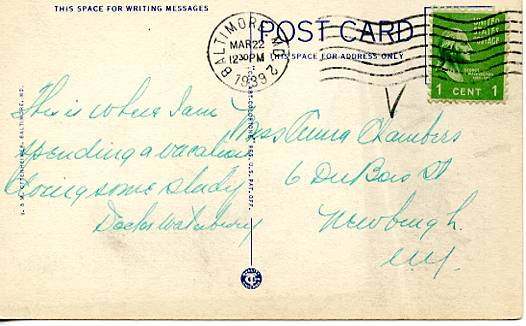 THIS SPACE FOR WRITING MESSAGES
POST CARD
THIS SPACE FOR ADDRESS ONLY
BALTIMORE, MD. 2
MAR 22
12 30 PM
1939
UNITED STATES
POSTAGE
GEORGE WASHINGTON
1 CENT 1
This is where I am
spending a vacation
doing some study
Doctor Waterbury
Miss Anna Chambers
6 DuBois St
Newburgh.
N.Y.
I. & M. OTTENHEIMER, BALTIMORE, MD.
REG. U.S. PAT. OFF.